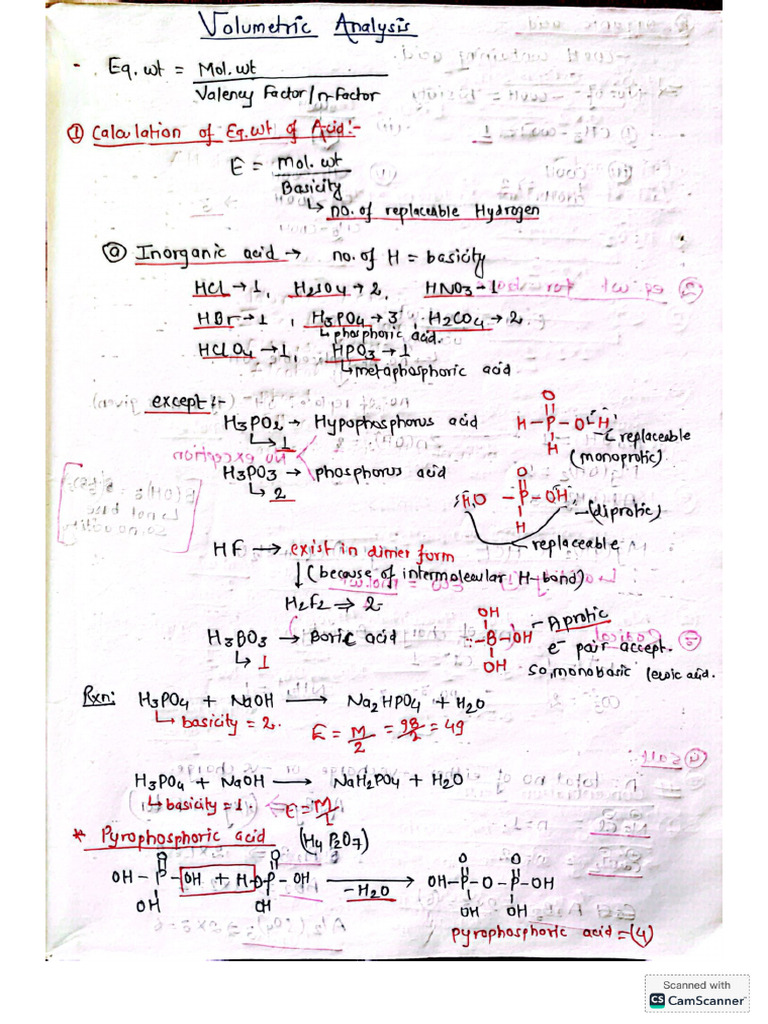 Volumetric Analysis
- Eq.wt = Mol.wt
Valency Factor/n-Factor
① Calculation of Eq.wt of Acid:-
E = Mol. wt
Basicity
↳ no. of replaceable Hydrogen
ⓐ Inorganic acid → no. of H = basicity
HCl → 1, H2SO4 → 2, HNO3 → 1
HBr → 1, H3PO4 → 3, H2CO4 → 2
↳ phosphoric acid.
HClO4 → 1, HPO3 → 1
↳ metaphosphoric acid
except :-
H3PO2 → Hypophosphorus acid
↳ 1
O
H-P-O-H
H
replaceable
(monoprotic)
H3PO3 → phosphorus acid
↳ 2
O
HO-P-OH
H
(diprotic)
replaceable
HF → exist in dimer form
↓ (because of intermolecular H-bond)
H2F2 ⇒ 2
H3BO3 → Boric acid
↳ 1
OH
B-OH
OH
- Aprotic
e⁻ pair accept.
so, monobasic lewic acid.
Rxn: H3PO4 + NaOH → Na2HPO4 + H2O
↳ basicity = 2. E = M/2 = 98/2 = 49
H3PO4 + NaOH → NaH2PO4 + H2O
↳ basicity = 1. E = M/1
* Pyrophosphoric acid (H4P2O7)
O O O O
OH-P-OH + HO-P-OH → OH-P-O-P-OH
-H2O
OH OH OH OH
pyrophosphoric acid = (4)
Scanned with
CS CamScanner